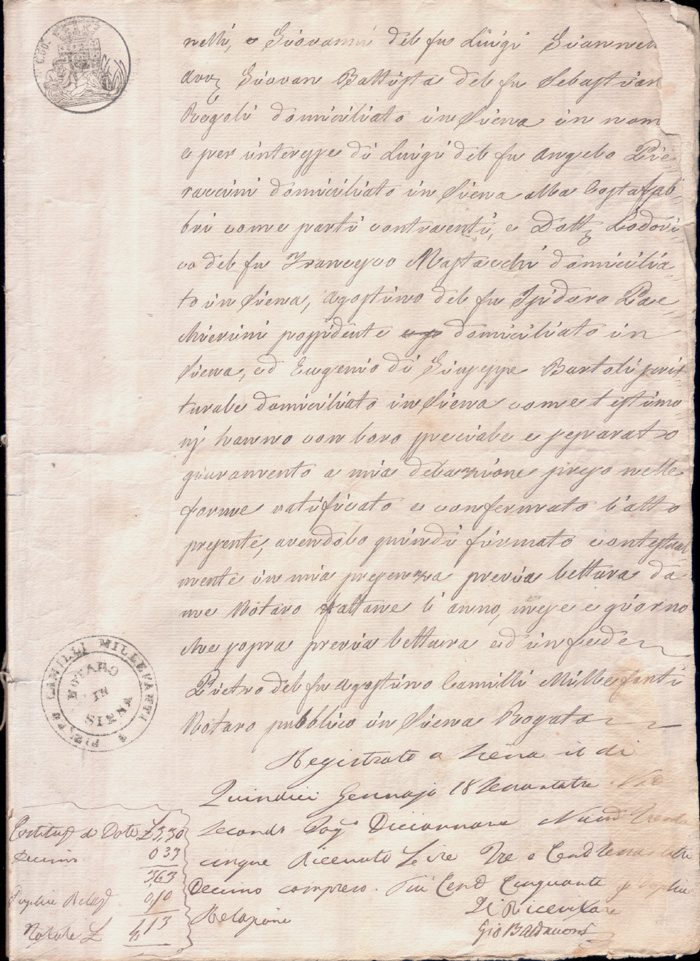 nelli, e Giovanni del fu Luigi Giannen
Avv Giovan Battista del fu Sebastian
Regoli domiciliato in Siena in nom
e per interesse di Luigi del fu Angelo Pie
raccini domiciliato in Siena alla Costafab
bri come parti contraenti, e Dott Lodovi
co del fu Francesco Mastacchi domicilia
to in Siena, Agostino del fu Isidoro Bac
chierini possidente domiciliato in
Siena, ed Eugenio di Giuseppe Bartoli scrit
turale domiciliato in Siena come testimo
nj hanno con loro speciale e separato
giuramento a mia delazione preso nelle
forme ratificato e confermato l'atto
presente, avendolo quindi firmato contestual
mente in mia presenza previa lettura da
me Notaro fattane l'anno, mese e giorno
che sopra previa lettura ed in fede
Pietro del fu Agostino Camilli Millefanti
Notaro pubblico in Siena Rogato
Registrato a Siena il di
Quindici Gennajo 18
Secondo
cinque Ricevuto Lire Tre e Cent
Decimo compreso. Più Cent Cinquanta p
Relazione
Il Ricevitore
Gio
NOTARO
IN
SIENA
Dote £ 3,30
Decimo 0 33
3,63
0,50
Totale £ 4,13